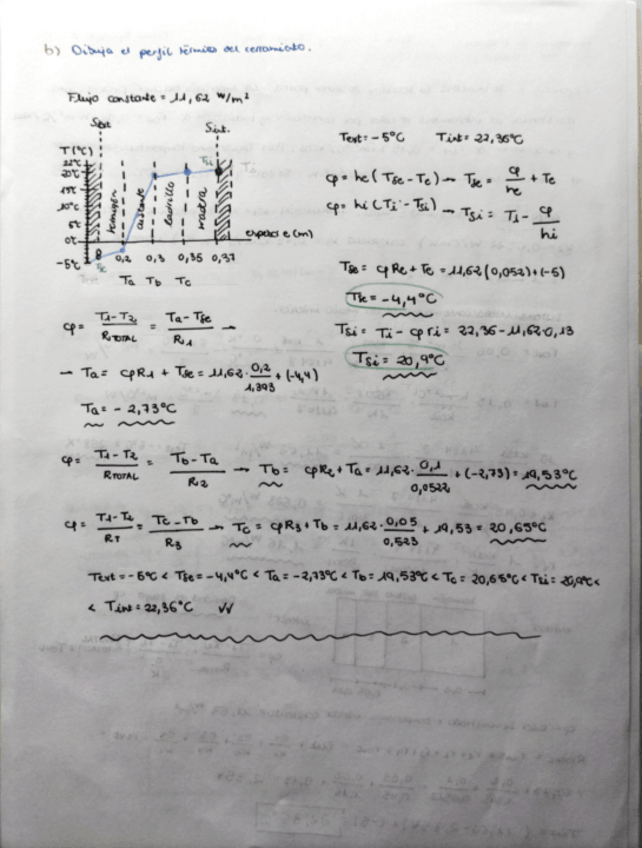 b) Dibuja el perfil térmico del cerramiento.
Flujo constante = 11,62 W/m²
Sext. Sint.
T(°C)
22°C
20°C
15°C
10°C
5°C
0°C
-5°C
hormigón
aislante
ladrillo
madera
Tsi Ti
espacio (m)
0 0,2 0,3 0,35 0,37
Tse
Ta Tb Tc
Text = -5°C Tint = 22,36°C
φ = he (Tse - Te) → Tse = φ/he + Te
φ = hi (Ti - Tsi) → Tsi = Ti - φ/hi
Tse = φRe + Te = 11,62 (0,052) + (-5)
Tse = -4,4°C
Tsi = Ti - φri = 22,36 - 11,62·0,13
Tsi = 20,9°C
φ = T1-T2/RTOTAL = Ta-Tse/R1 →
→ Ta = φR1 + Tse = 11,62 · 0,2/1,393 + (-4,4)
Ta = - 2,73°C
φ = T1-T2/RTOTAL = Tb-Ta/R2 → Tb = φR2 + Ta = 11,62 · 0,1/0,0522 + (-2,73) = 19,53°C
φ = T1-T2/RT = Tc-Tb/R3 → Tc = φR3 + Tb = 11,62 · 0,05/0,523 + 19,53 = 20,65°C
Text = -5°C < Tse = -4,4°C < Ta = -2,73°C < Tb = 19,53°C < Tc = 20,65°C < Tsi = 20,9°C <
< Tint = 22,36°C